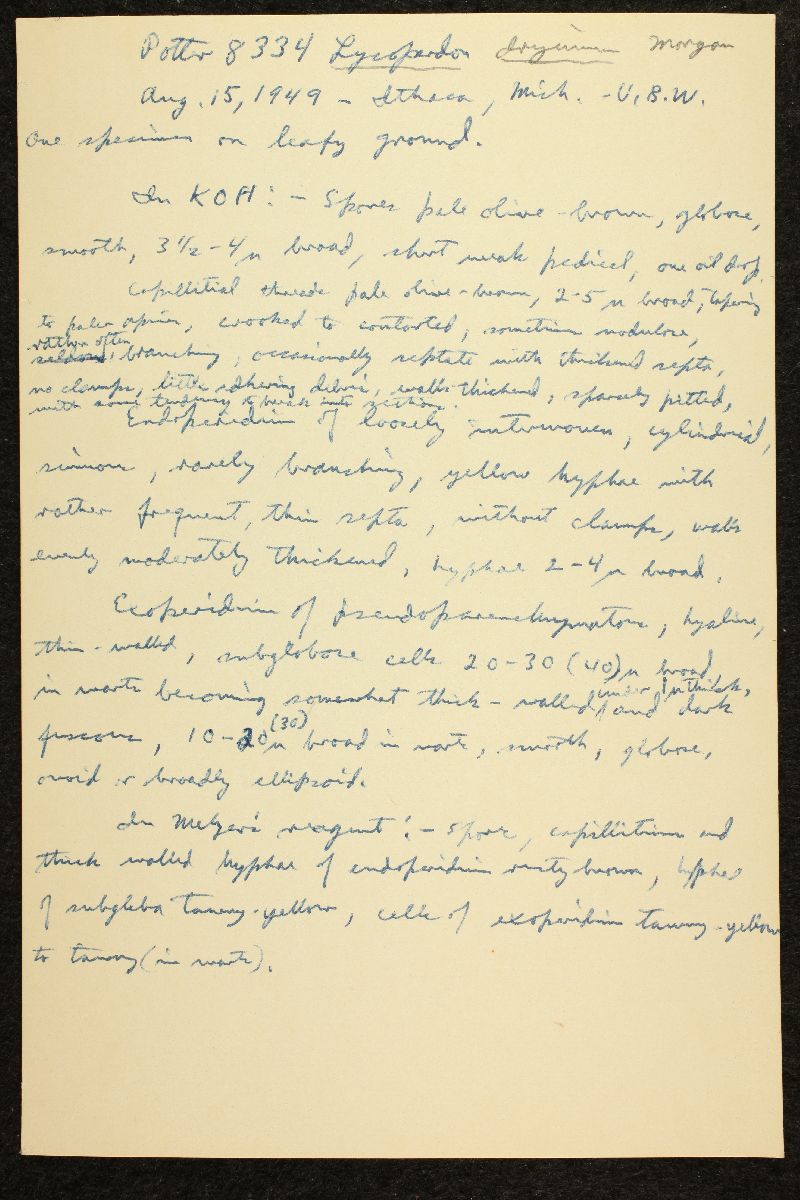 Potter 8334 Lycoperdon dryinum Morgan
Aug. 15, 1949 - Ithaca, Mich. - V.B.W.
One specimen on leafy ground.
In KOH: - Spores pale olive-brown, globose,
smooth, 3 1/2 - 4 µ broad, short weak pedicel, one oil drop.
Capillitial threads pale olive-brown, 2-5 µ broad, tapering
to paler apices, crooked to contorted, sometimes nodulose,
rather often
seldom branching, occasionally septate with thickened septa,
no clamps, little adhering debris, walls thickened, sparsely pitted,
with some tendency to break into sections.
Endoperidium of loosely interwoven, cylindrical,
sinuous, rarely branching, yellow hyphae with
rather frequent, thin septa, without clamps, walls
evenly moderately thickened, hyphae 2-4 µ broad.
Exoperidium of pseudoparenchymatous, hyaline,
thin-walled, subglobose cells 20-30 (40) µ broad,
in warts becoming somewhat thick-walled, and dark
under 1 µ thick,
fuscous, 10-20 (30) µ broad in warts, smooth, globose,
ovoid or broadly ellipsoid.
In Melzer's reagent: - Spores, capillitium and
thick walled hyphae of endoperidium rusty-brown, hyphae
of subgleba tawny-yellow, cells of exoperidium tawny-yellow
to tawny (in warts).